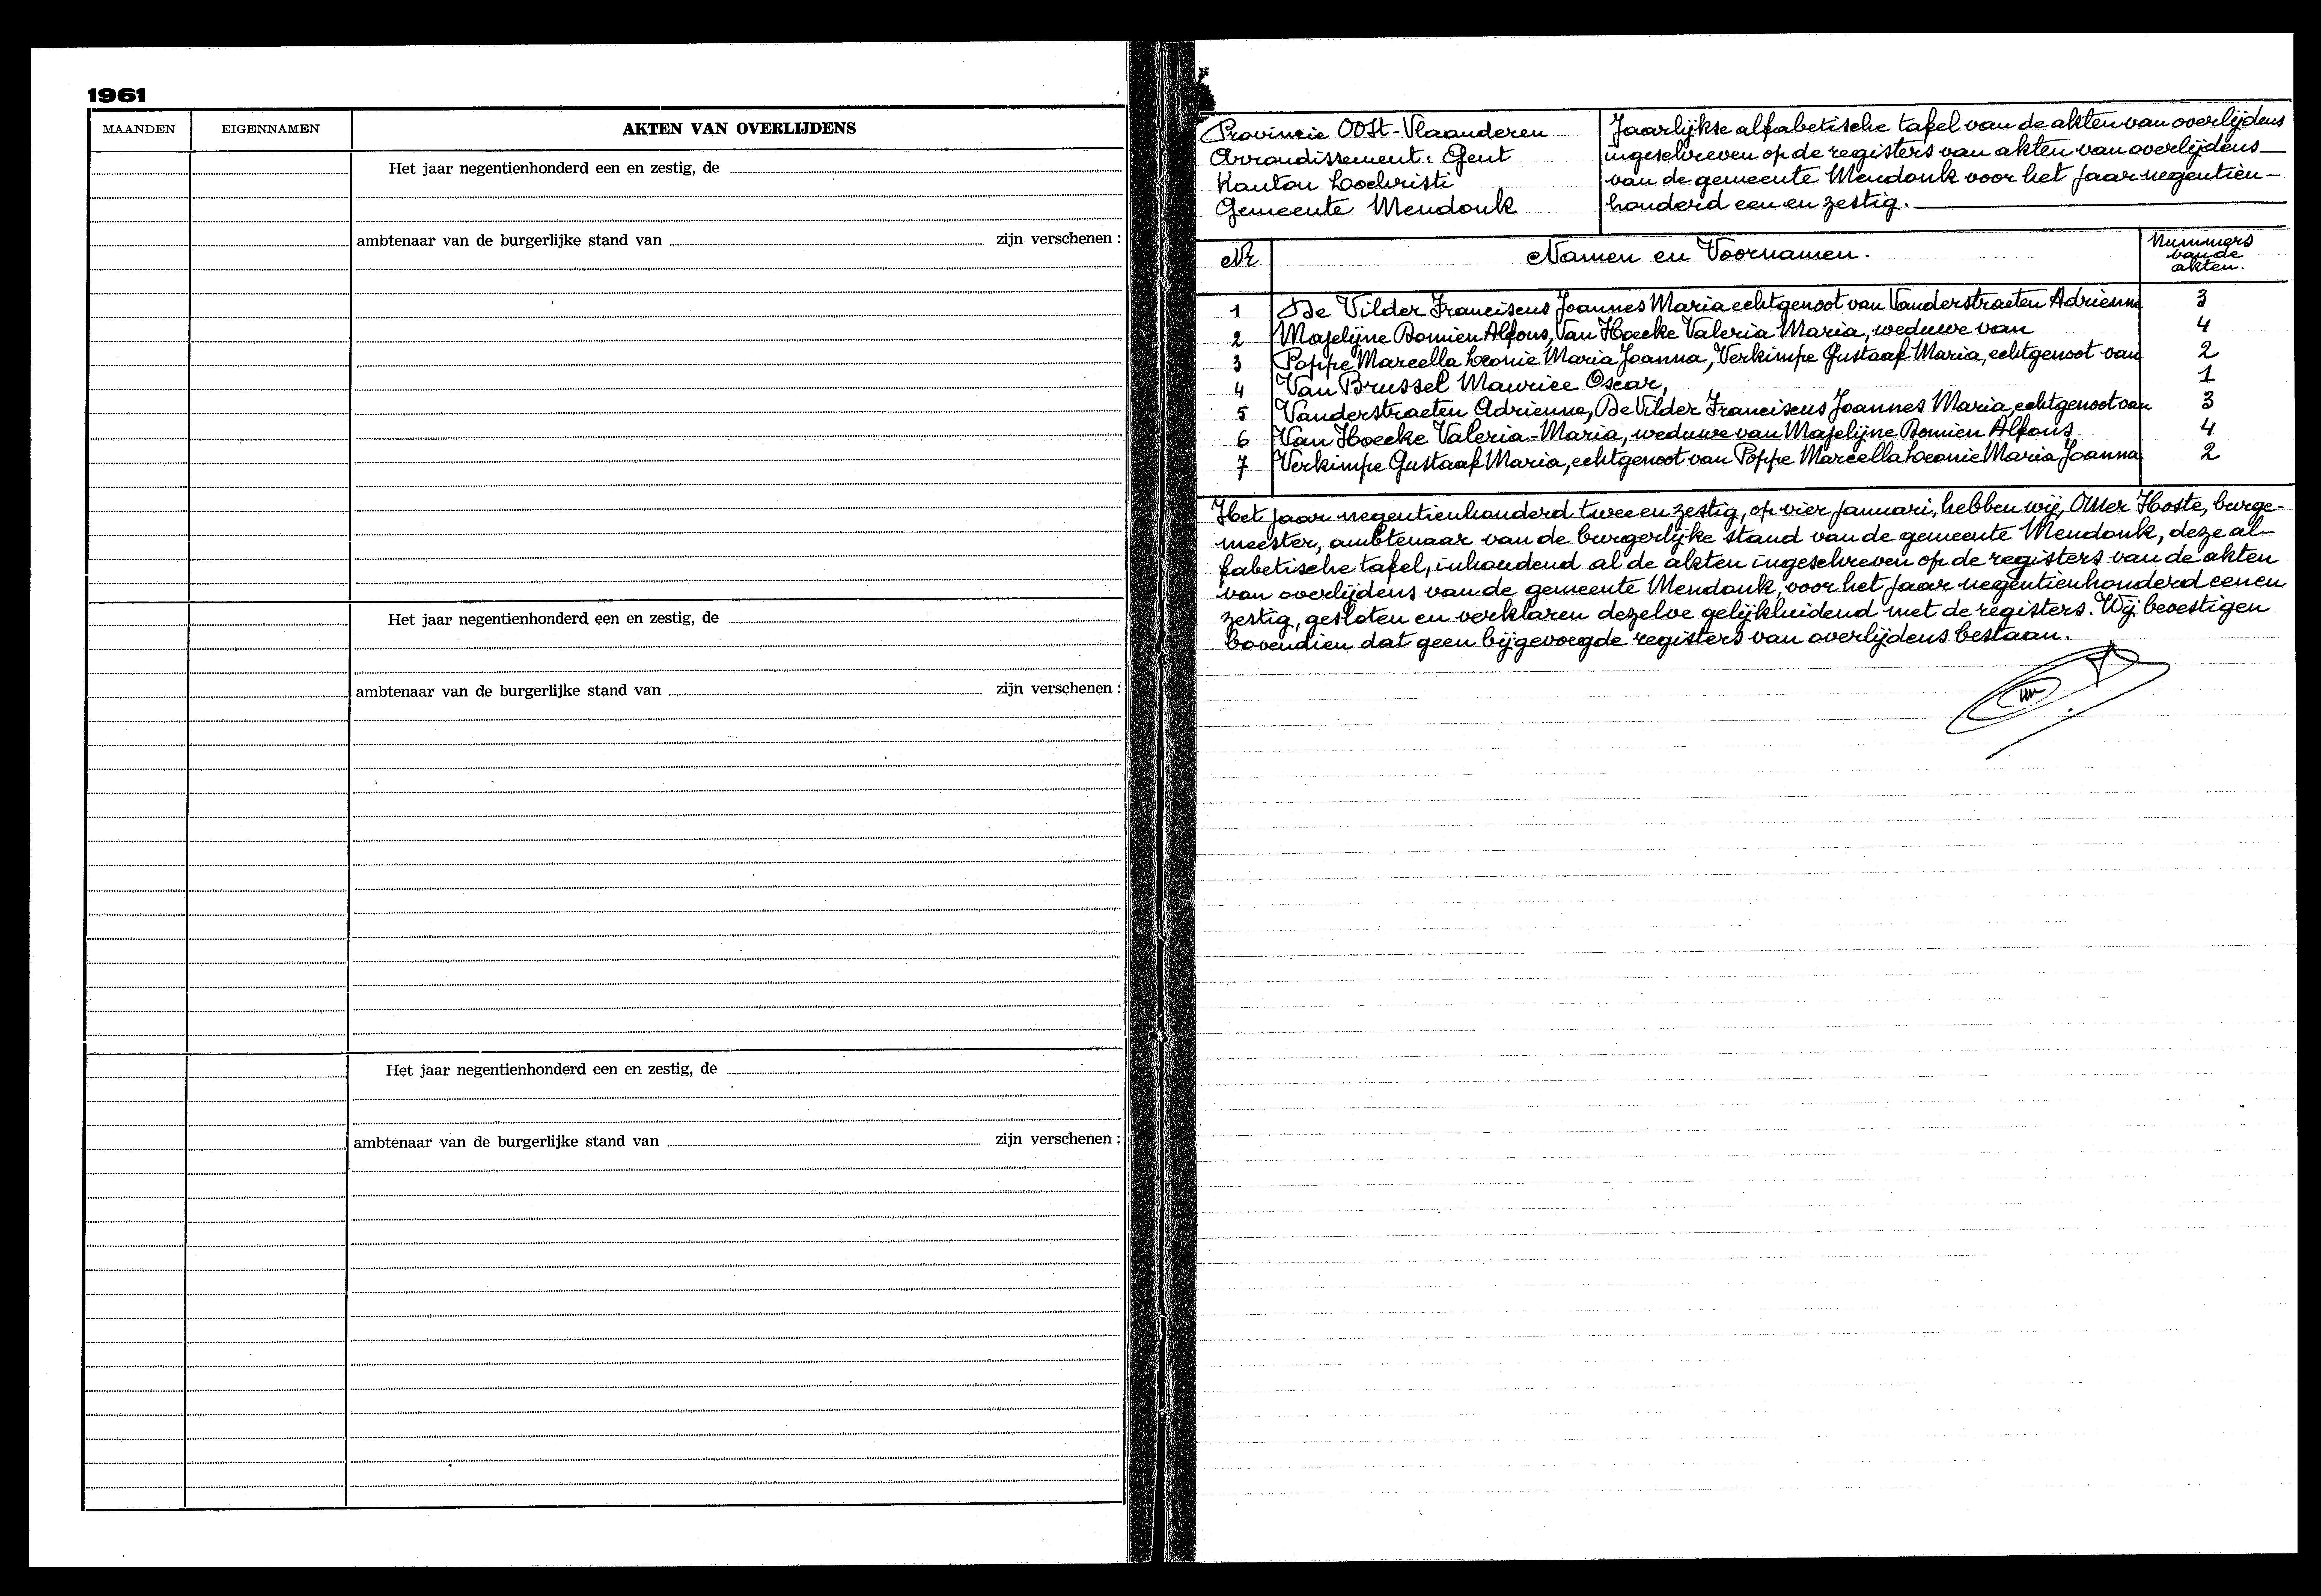 1961
MAANDEN EIGENNAMEN AKTEN VAN OVERLIJDENS
Het jaar negentienhonderd een en zestig, de
ambtenaar van de burgerlijke stand van zijn verschenen :
Het jaar negentienhonderd een en zestig, de
ambtenaar van de burgerlijke stand van zijn verschenen :
Het jaar negentienhonderd een en zestig, de
ambtenaar van de burgerlijke stand van zijn verschenen :
Provincie Oost-Vlaanderen
Arrondissement: Gent
Kanton Lochristi
Gemeente Mendonk
Jaarlijkse alfabetische tafel van de akten van overlijdens
ingeschreven op de registers van akten van overlijdens
van de gemeente Mendonk voor het jaar negentien-
honderd een en zestig.
Nr Namen en Voornamen. Nummers
van de
akten.
1 De Vilder Franciscus Joannes Maria echtgenoot van Vanderstraeten Adrienne 3
2 Majelijne Bomien Alfons, Van Hoecke Valeria Maria, weduwe van 4
3 Poppe Marcella Leonie Maria Joanna, Verkimpe Gustaaf Maria, echtgenoot van 2
4 Van Brussel Maurice Oscar, 1
5 Vanderstraeten Adrienne, De Vilder Franciscus Joannes Maria, echtgenoot van 3
6 Van Hoecke Valeria-Maria, weduwe van Majelijne Bomien Alfons 4
7 Verkimpe Gustaaf Maria, echtgenoot van Poppe Marcella Leonie Maria Joanna 2
Het jaar negentienhonderd twee en zestig, op vier januari, hebben wij, Omer Hoste, burge-
meester, ambtenaar van de burgerlijke stand van de gemeente Mendonk, deze al-
fabetische tafel, inhoudend al de akten ingeschreven op de registers van de akten
van overlijdens van de gemeente Mendonk, voor het jaar negentienhonderd een en
zestig, gesloten en verklaren dezelve gelijkluidend met de registers. Wij bevestigen
bovendien dat geen bijgevoegde registers van overlijdens bestaan.